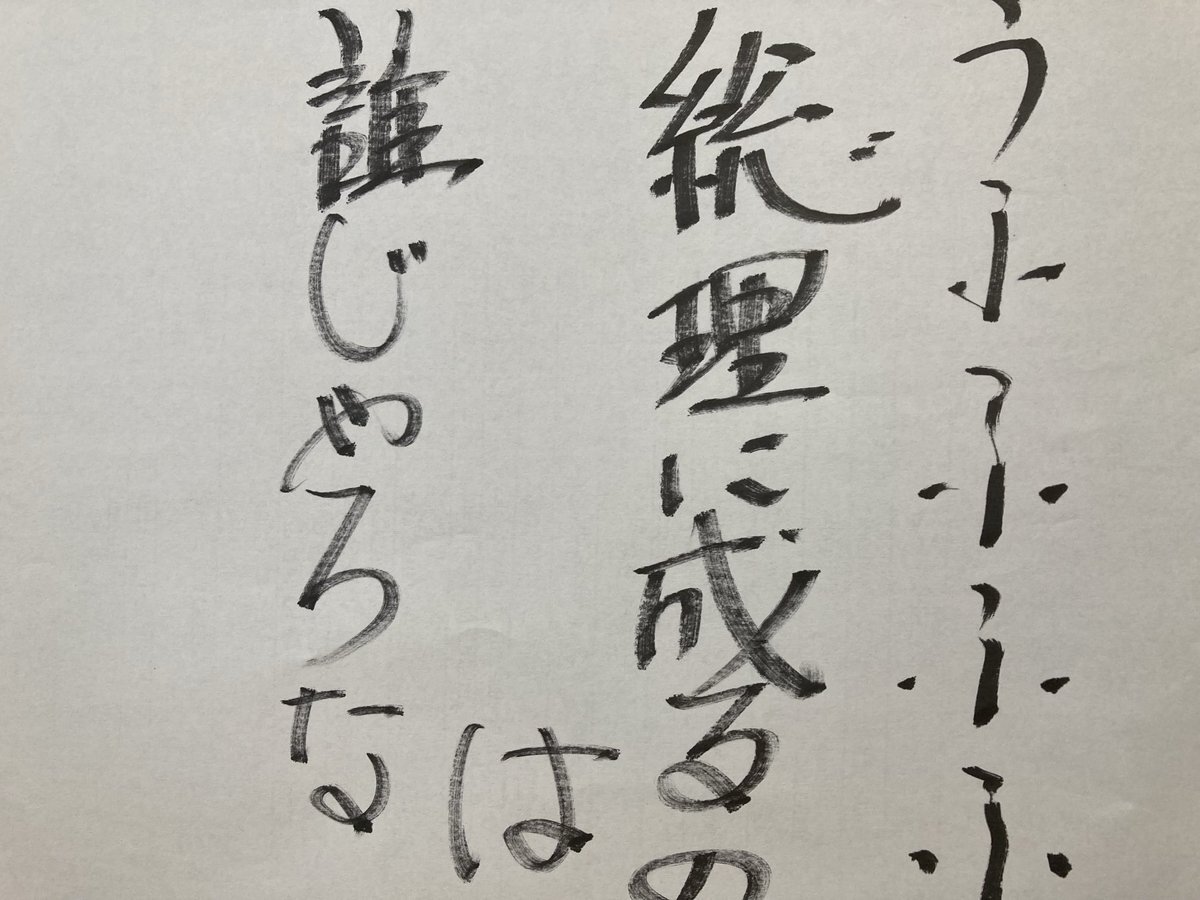 うふふふふ
総理に成るの
は
誰じゃろな